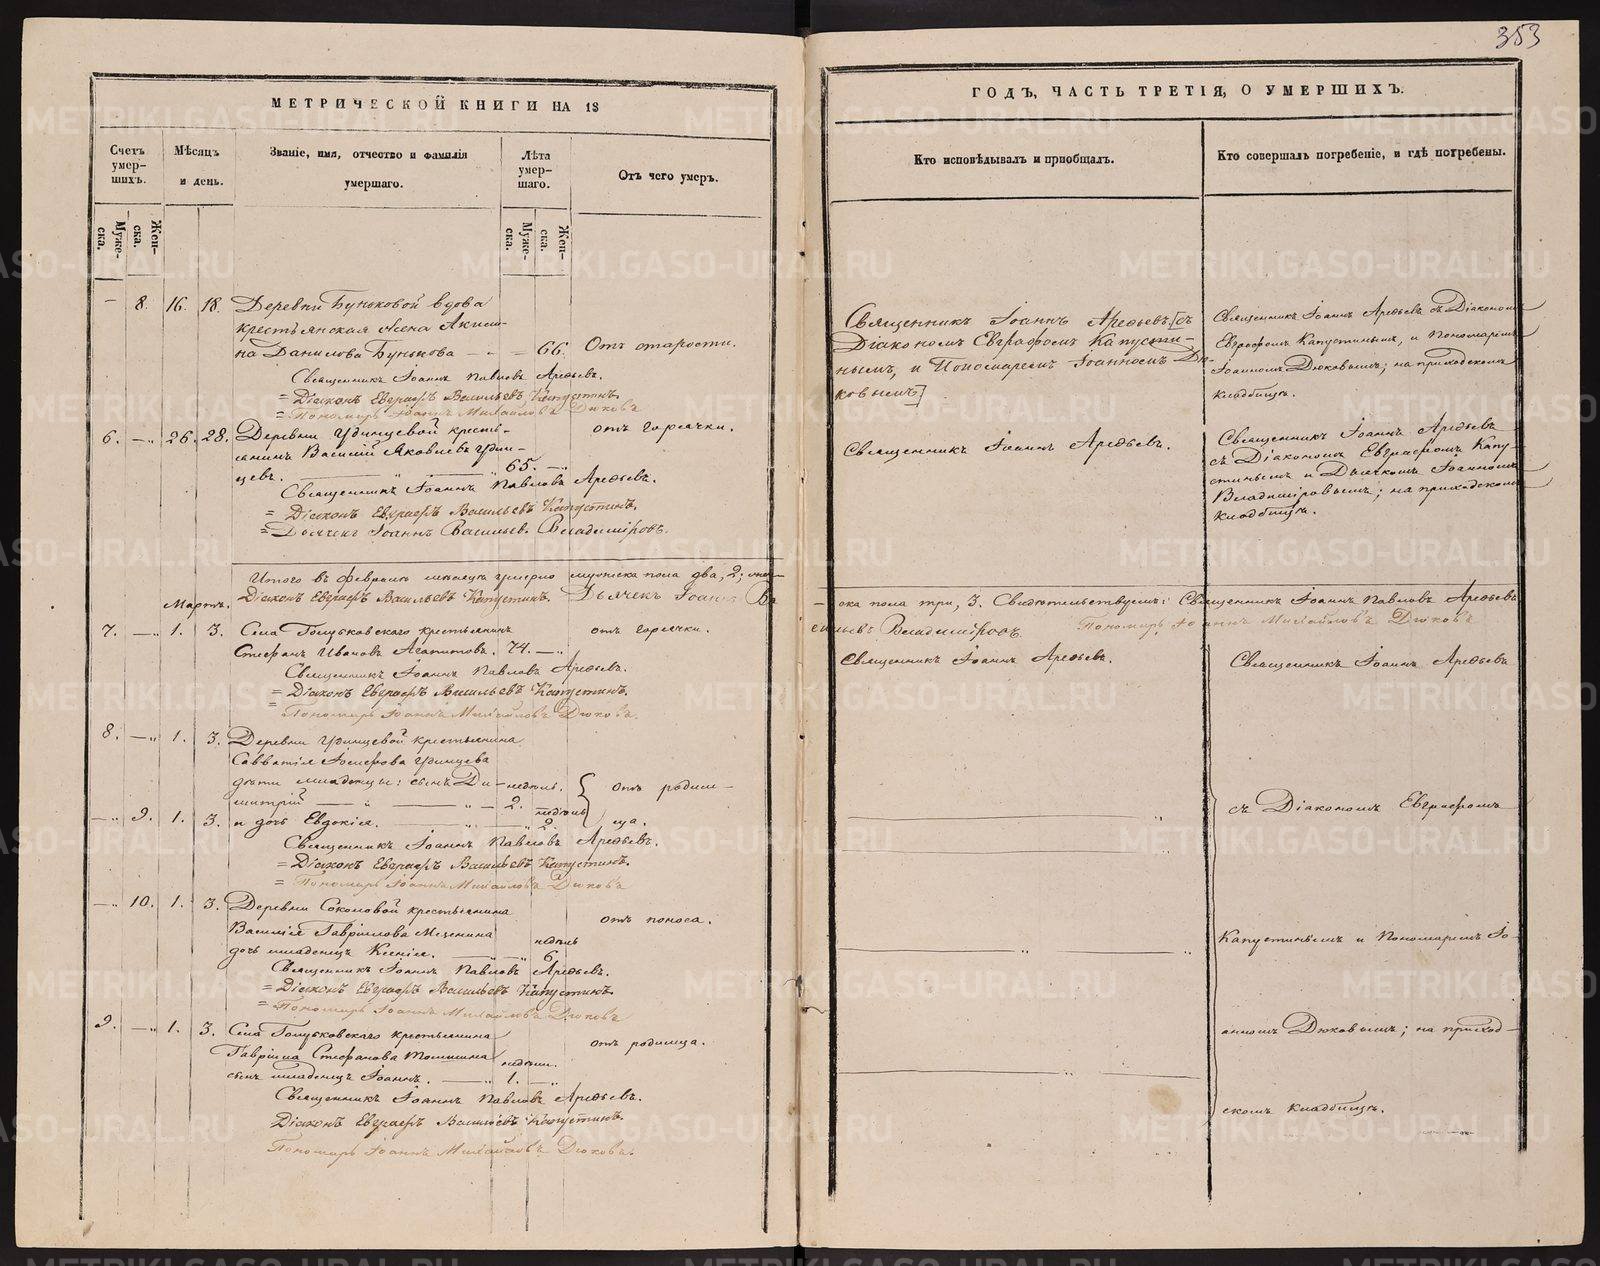 353
МЕТРИЧЕСКОЙ КНИГИ НА 18
ГОДЪ, ЧАСТЬ ТРЕТІЯ, О УМЕРШИХЪ.
Счетъ умер-шихъ.
Мѣсяцъ и день.
Званіе, имя, отчество и фамилія
умершаго.
Лѣта умер-шаго.
Отъ чего умеръ.
Кто исповѣдывалъ и приобщалъ.
Кто совершалъ погребеніе, и гдѣ погребены.
Муже-ска.
Жен-ска.
Муже-ска.
Жен-ска.
— 8. 16. 18. Деревни Буньковой вдова
крестьянская Акили-
на Данилова Бунькова — 66. Отъ старости.
Священникъ Іоаннъ Павловъ Арефьевъ.
= Діаконъ Евграфъ Васильевъ Капустинъ.
= Пономарь Іоаннъ Михайловъ Дюковъ
Священникъ Іоаннъ Арефьевъ [съ
Діакономъ Евграфомъ Капусти-
нымъ, и Пономаремъ Іоанномъ Дю-
ковымъ]
Священникъ Іоаннъ Арефьевъ съ Діакономъ
Евграфомъ Капустинымъ, и Пономаремъ
Іоанномъ Дюковымъ; на приходскомъ
кладбищѣ.
6. — 26. 28. Деревни Удинцевой кресть-
янинъ Василій Яковлевъ Удин-
цевъ. 65. — отъ горячки.
Священникъ Іоаннъ Павловъ Арефьевъ.
= Діаконъ Евграфъ Васильевъ Капустинъ.
= Дьячекъ Іоаннъ Васильев. Владиміровъ.
Священникъ Іоаннъ Арефьевъ.
Священникъ Іоаннъ Арефьевъ
съ Діакономъ Евграфомъ Капу-
стинымъ и Дьячкомъ Іоанномъ
Владиміровымъ; на приходскомъ
кладбищѣ.
Итого въ февралѣ мѣсяцѣ умерло мужеска пола два, 2; жен-
ска пола три, 3. Свидѣтельствуемъ: Священникъ Іоаннъ Павловъ Арефьевъ
Діаконъ Евграфъ Васильевъ Капустинъ. Дьячекъ Іоаннъ Ва
сильевъ Владиміровъ. Пономарь Іоаннъ Михайловъ Дюковъ
Мартъ.
7. — 1. 3. Села Голубковскаго крестьянинъ
Стефанъ Ивановъ Агапитовъ. 74. — отъ горячки.
Священникъ Іоаннъ Павловъ Арефьевъ.
= Діаконъ Евграфъ Васильевъ Капустинъ.
= Пономарь Іоаннъ Михайловъ Дюковъ.
Священникъ Іоаннъ Арефьевъ.
Священникъ Іоаннъ Арефьевъ
8. — 1. 3. Деревни Удинцевой крестьянина
Савватія Іосифова Удинцева
дѣти младенцы: сынъ Ди- недѣль.
митрій 2.
— 9. 1. 3. и дочь Евдокія. недѣль 2.
отъ родим-
ца.
Священникъ Іоаннъ Павловъ Арефьевъ.
= Діаконъ Евграфъ Васильевъ Капустинъ.
= Пономарь Іоаннъ Михайловъ Дюковъ
съ Діакономъ Евграфомъ
— 10. 1. 3. Деревни Соколовой крестьянина
Василія Гаврілова
дочь младенецъ Ксенія. недѣль 6. отъ поноса.
Священникъ Іоаннъ Павловъ Арефьевъ.
= Діаконъ Евграфъ Васильевъ Капустинъ.
= Пономарь Іоаннъ Михайловъ Дюковъ
Капустинымъ и Пономаремъ Іо-
9. — 1. 3. Села Голубковскаго крестьянина
Гавріила Стефанова
сынъ младенецъ Іоаннъ. недѣли. 1. — отъ родимца.
Священникъ Іоаннъ Павловъ Арефьевъ.
Діаконъ Евграфъ Васильевъ Капустинъ.
Пономарь Іоаннъ Михайловъ Дюковъ.
анномъ Дюковымъ; на приход-
скомъ кладбищѣ.
METRIKI.GASO-URAL.RU